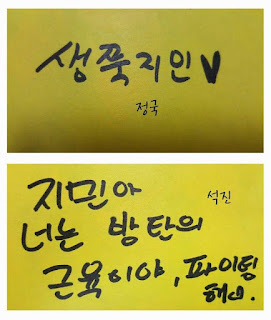 생쪽지인♥
정국
지민아
석진
너는 방탄의
근육이야, 파이팅
해.